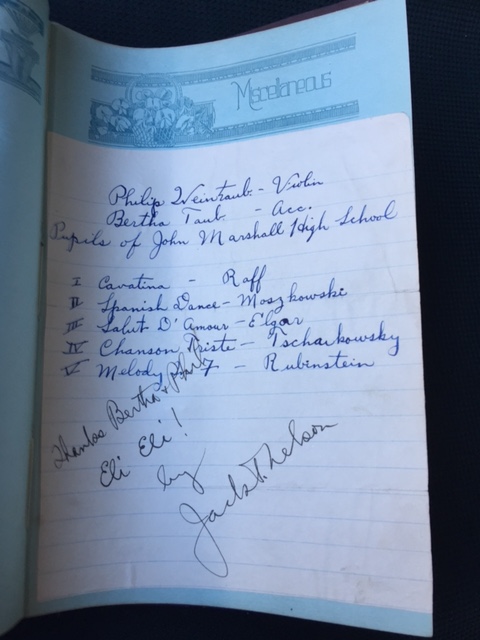 Miscellaneous
Philip Weintraub - Violin
Bertha Taub - Acc.
Pupils of John Marshall High School
I Cavatina - Raff
II Spanish Dance - Moszkowski
III Salut D'Amour - Elgar
IV Chanson Triste - Tscharkowsky
V Melody in F - Rubinstein
Thanks Bertha & Phil
Eli Eli!
by
Jack T. Nelson